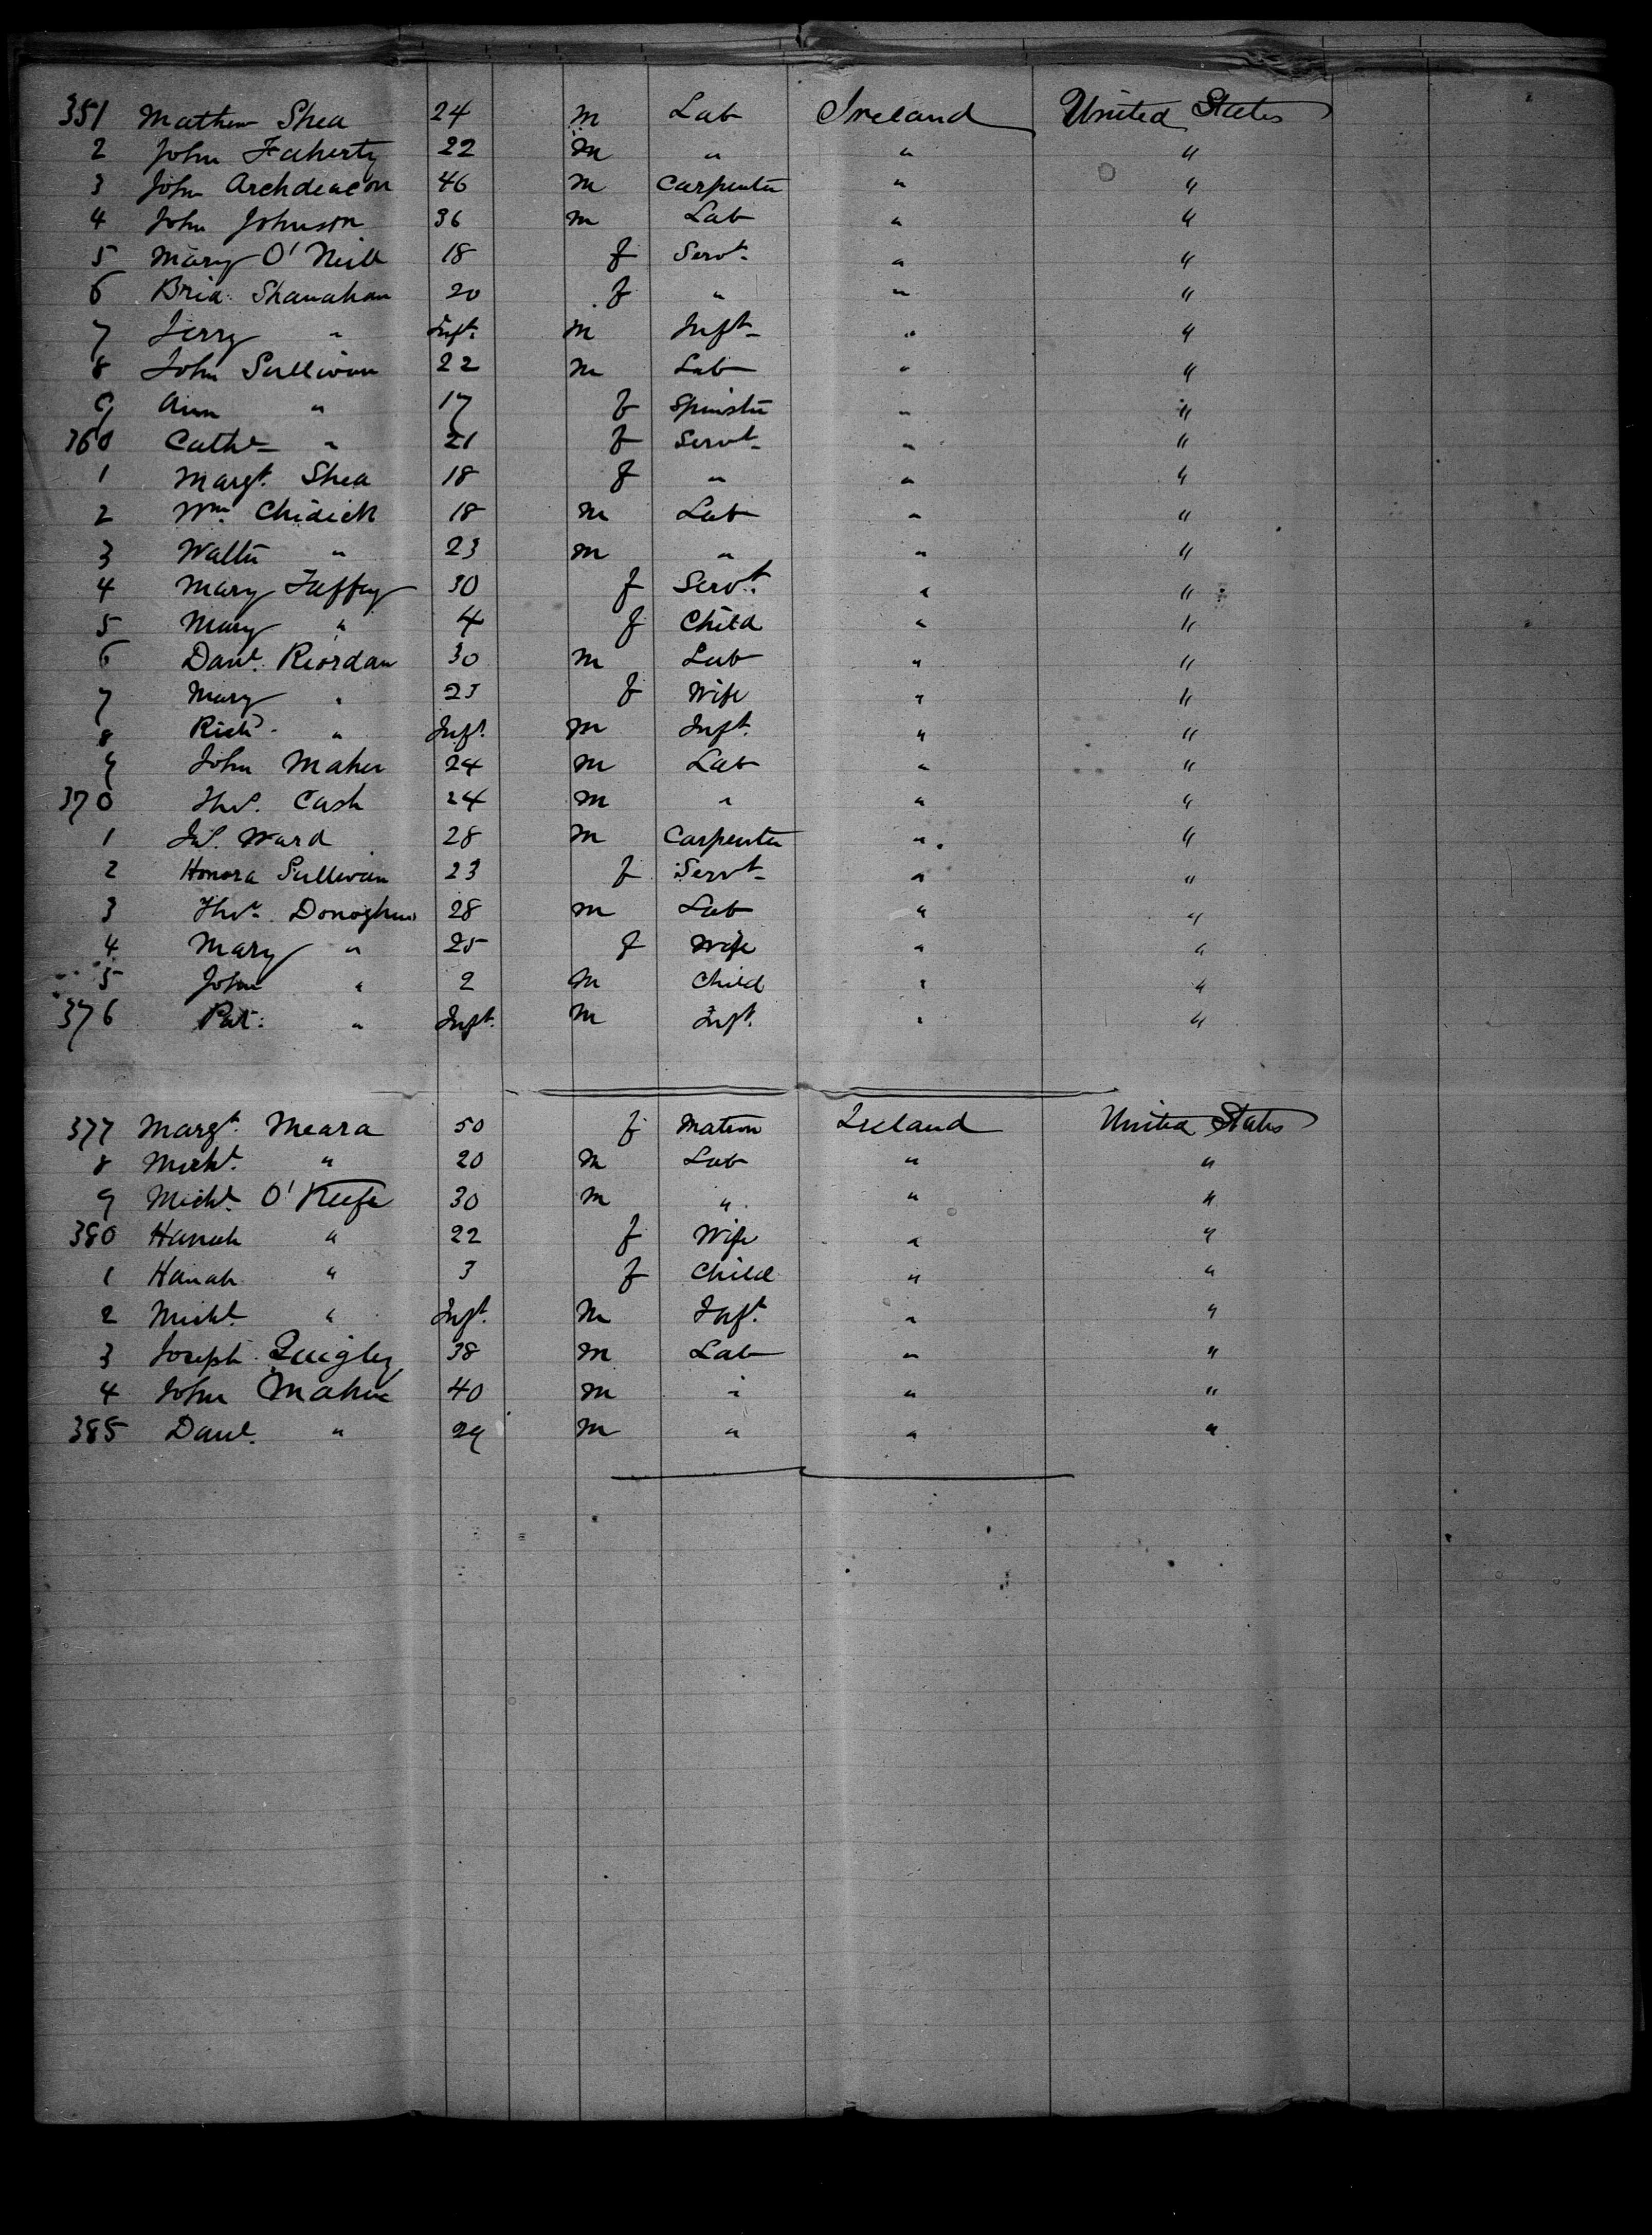 351 Mathew Shea 24 m Lab Ireland United States
2 John Faherty 22 m " " "
3 John Archdeacon 46 m Carpenter " "
4 John Johnson 36 m Lab " "
5 Mary O'Neill 18 f Servt. " "
6 Brid. Shanahan 20 f " " "
7 Jerry " Inft. m Inft. " "
8 John Sullivan 22 m Lab " "
9 Ann " 17 f Spinster " "
360 Cathe " 21 f Servt. " "
1 Margt. Shea 18 f " " "
2 Wm. Chidick 18 m Lab " "
3 Walter " 23 m " " "
4 Mary Taffey 30 f Servt. " "
5 Mary " 4 f Child " "
6 Danl. Riordan 30 m Lab " "
7 Mary " 25 f Wife " "
8 Richd. " Inft. m Inft. " "
9 John Maher 24 m Lab " "
370 Thos. Cash 24 m " " "
1 Ward 28 m Carpenter " "
2 Honora Sullivan 23 f Servt. " "
3 Thos. Donoghue 28 m Lab " "
4 Mary " 25 f Wife " "
5 John " 2 m Child " "
376 Pat: " Inft. m Inft. " "
377 Margt. Meara 50 f Matron Ireland United States
8 Michl. " 20 m Lab " "
9 Michl. O'Keefe 30 m " " "
380 Hanah " 22 f Wife " "
1 Hanah " 3 f Child " "
2 Michl. " Inft. m Inft. " "
3 Joseph Quigley 38 m Lab " "
4 John 40 m " " "
385 Danl. " 29 m " " "